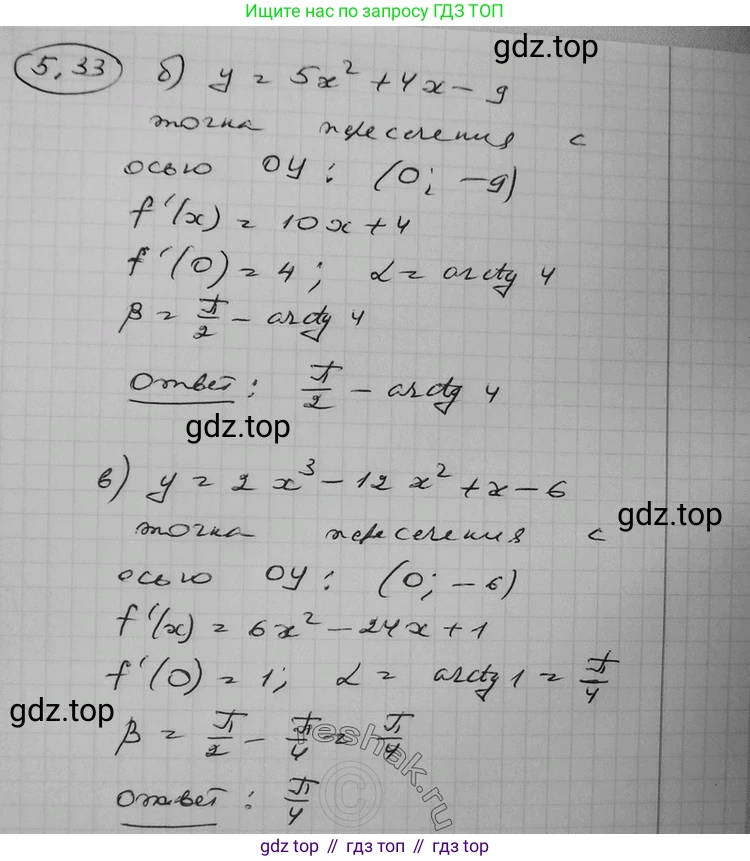 Ищите нас по запросу ГДЗ ТОП
5,33 б) y = 5x² + 4x - 9
gdz.top
точка пересечения с
осью OY: (0; -9)
f'(x) = 10x + 4
f'(0) = 4; α = arctg 4
β = π/2 - arctg 4
Ответ: π/2 - arctg 4
gdz.top
в) y = 2x³ - 12x² + x - 6
gdz.top
точка пересечения с
осью OY: (0; -6)
f'(x) = 6x² - 24x + 1
f'(0) = 1; α = arctg 1 = π/4
gdz.top
β = π/2 - π/4 = π/4
reshak.ru
©
Ответ: π/4
gdz.top // гдз топ // gdz.top